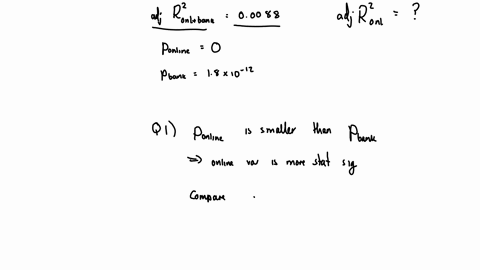 adj R²onl+bank = 0.0088 adj R²onl = ?
Ponline = 0
Pbank = 1.8 x 10⁻¹²
Q1) Ponline is smaller than Pbank
⇒ online var is more stat sig
Compare